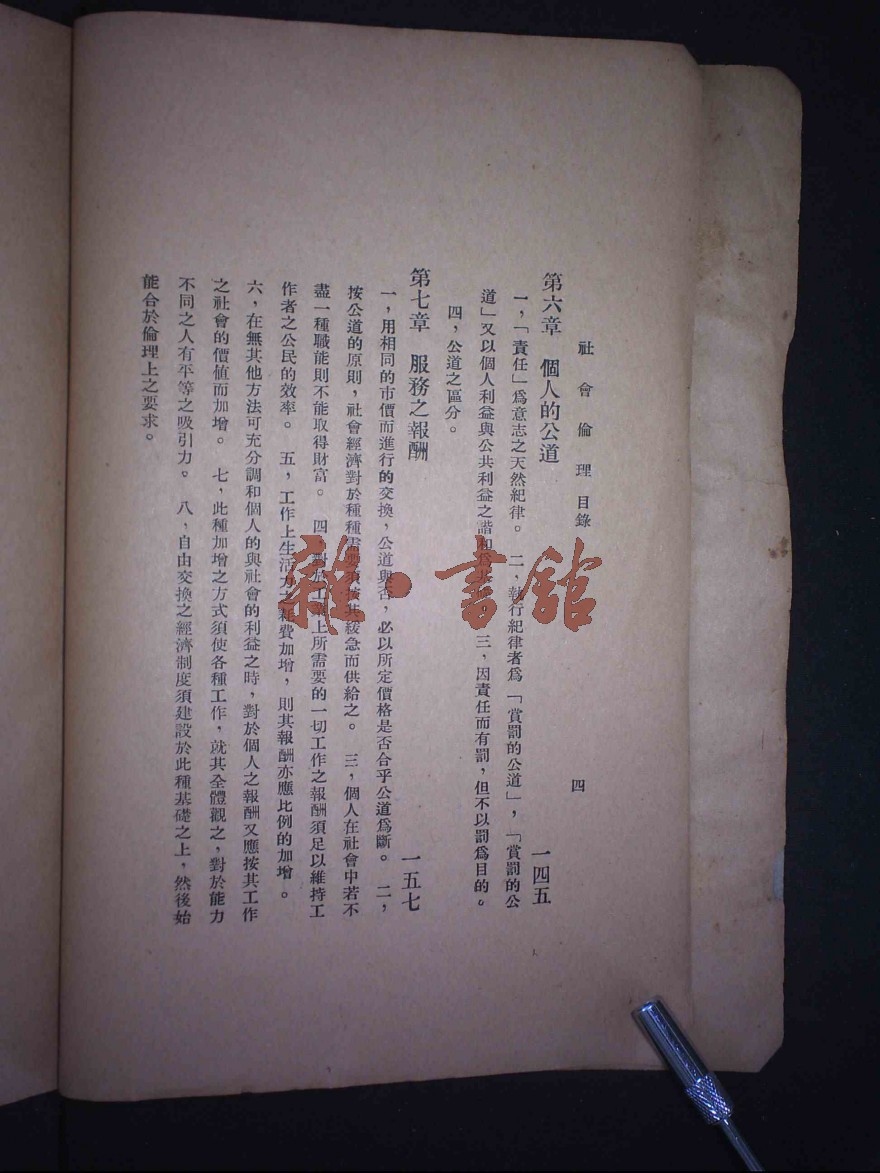 社會倫理目錄
四
第六章　個人的公道
一四五
一，「責任」爲意志之天然紀律。　二，執行紀律者爲「賞罰的公道」，「賞罰的公
道」又以個人利益與公共利益之諧和爲　三，因責任而有罰，但不以罰爲目的。
四，公道之區分。
第七章　服務之報酬
一五七
一，用相同的市價而進行的交換，公道與否，必以所定價格是否合乎公道爲斷。　二，
按公道的原則，社會經濟對於種種需要須按其緩急而供給之。　三，個人在社會中若不
盡一種職能則不能取得財富。　四，對於工業上所需要的一切工作之報酬須足以維持工
作者之公民的效率。　五，工作上生活力之耗費加增，則其報酬亦應比例的加增。
六，在無其他方法可充分調和個人的與社會的利益之時，對於個人之報酬又應按其工作
之社會的價值而加增。　七，此種加增之方式須使各種工作，就其全體觀之，對於能力
不同之人有平等之吸引力。　八，自由交換之經濟制度須建設於此種基礎之上，然後始
能合於倫理上之要求。
雜·書館